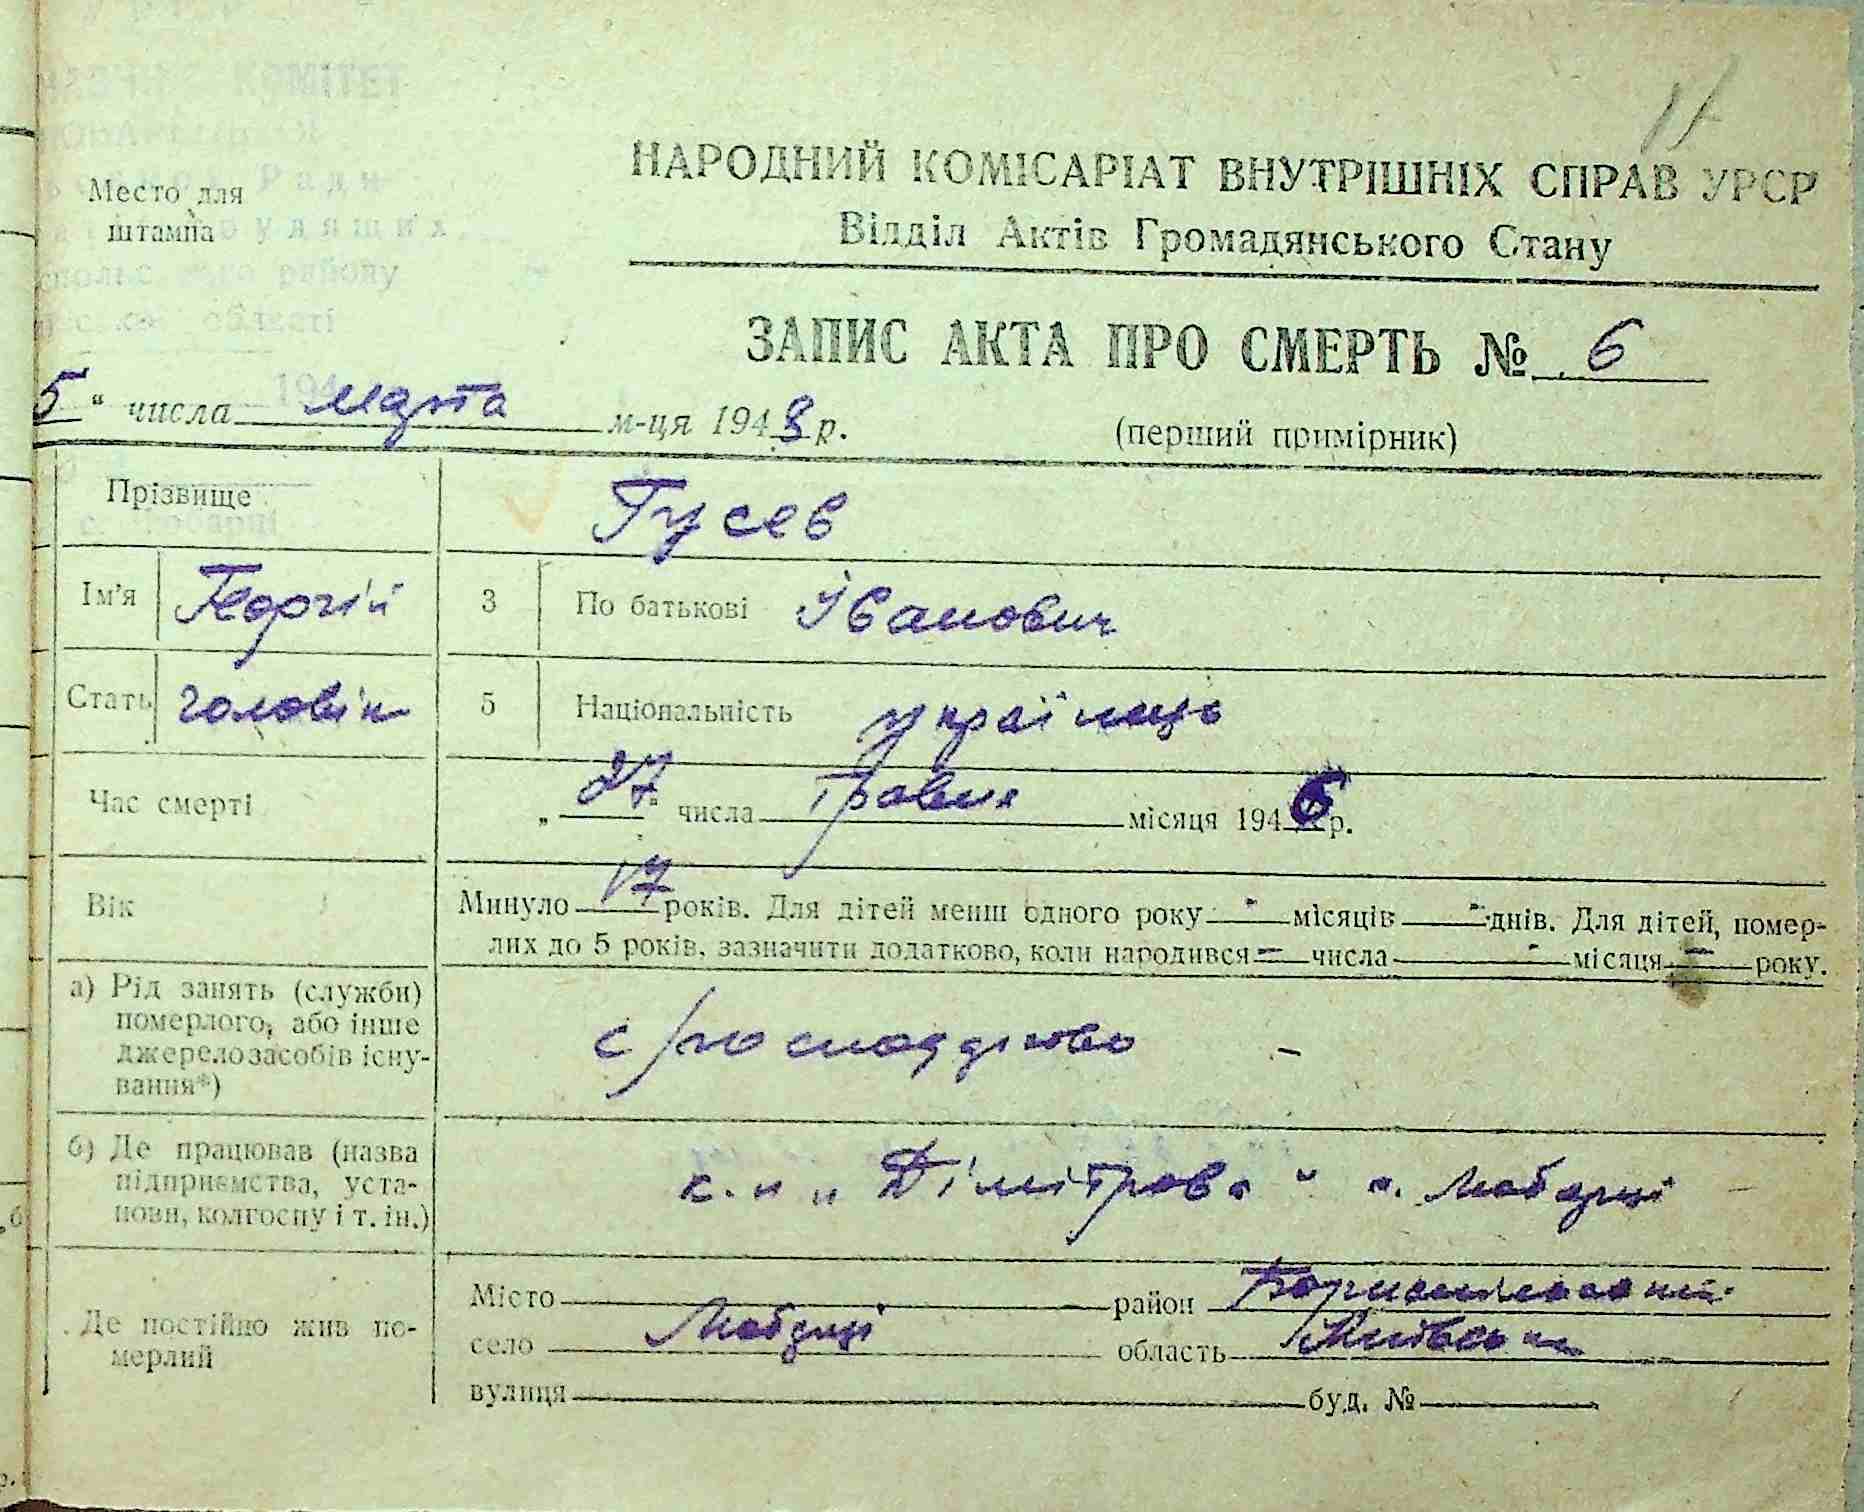 17
НАРОДНИЙ КОМІСАРІАТ ВНУТРІШНІХ СПРАВ УРСР
Место для
штампа
Відділ Актів Громадянського Стану
ЗАПИС АКТА ПРО СМЕРТЬ № 6
5 " числа марта м-ця 1948 р.
(перший примірник)
Прізвище Гусев
Ім'я Георгій 3 По батькові Іванович
Стать чоловік 5 Національність українець
Час смерті „ 27 " числа травня місяця 1946 р.
Вік Минуло 17 років. Для дітей менш одного року - місяців - днів. Для дітей, помер-
лих до 5 років, зазначити додатково, коли народився - числа - місяця - року.
а) Рід занять (служби)
померлого, або інше
джерело засобів існу-
вання*)
с/господарство -
б) Де працював (назва
підприємства, уста-
нови, колгоспу і т. ін.)
"Дімітрова" с. Любарці
Де постійно жив по-
мерлий
Місто район Бориспільський
село Любарці область Київська
вулиця буд. №